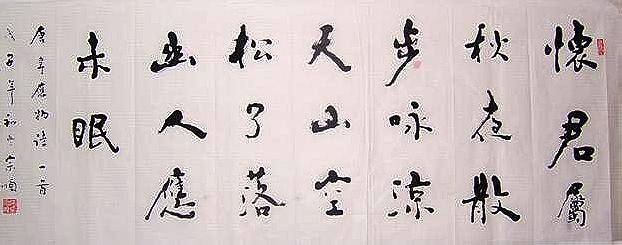 懷君屬
秋夜散
步咏涼
天山空
松子落
幽人應
未眠
唐韋應物詩一首
戊子年初宗順